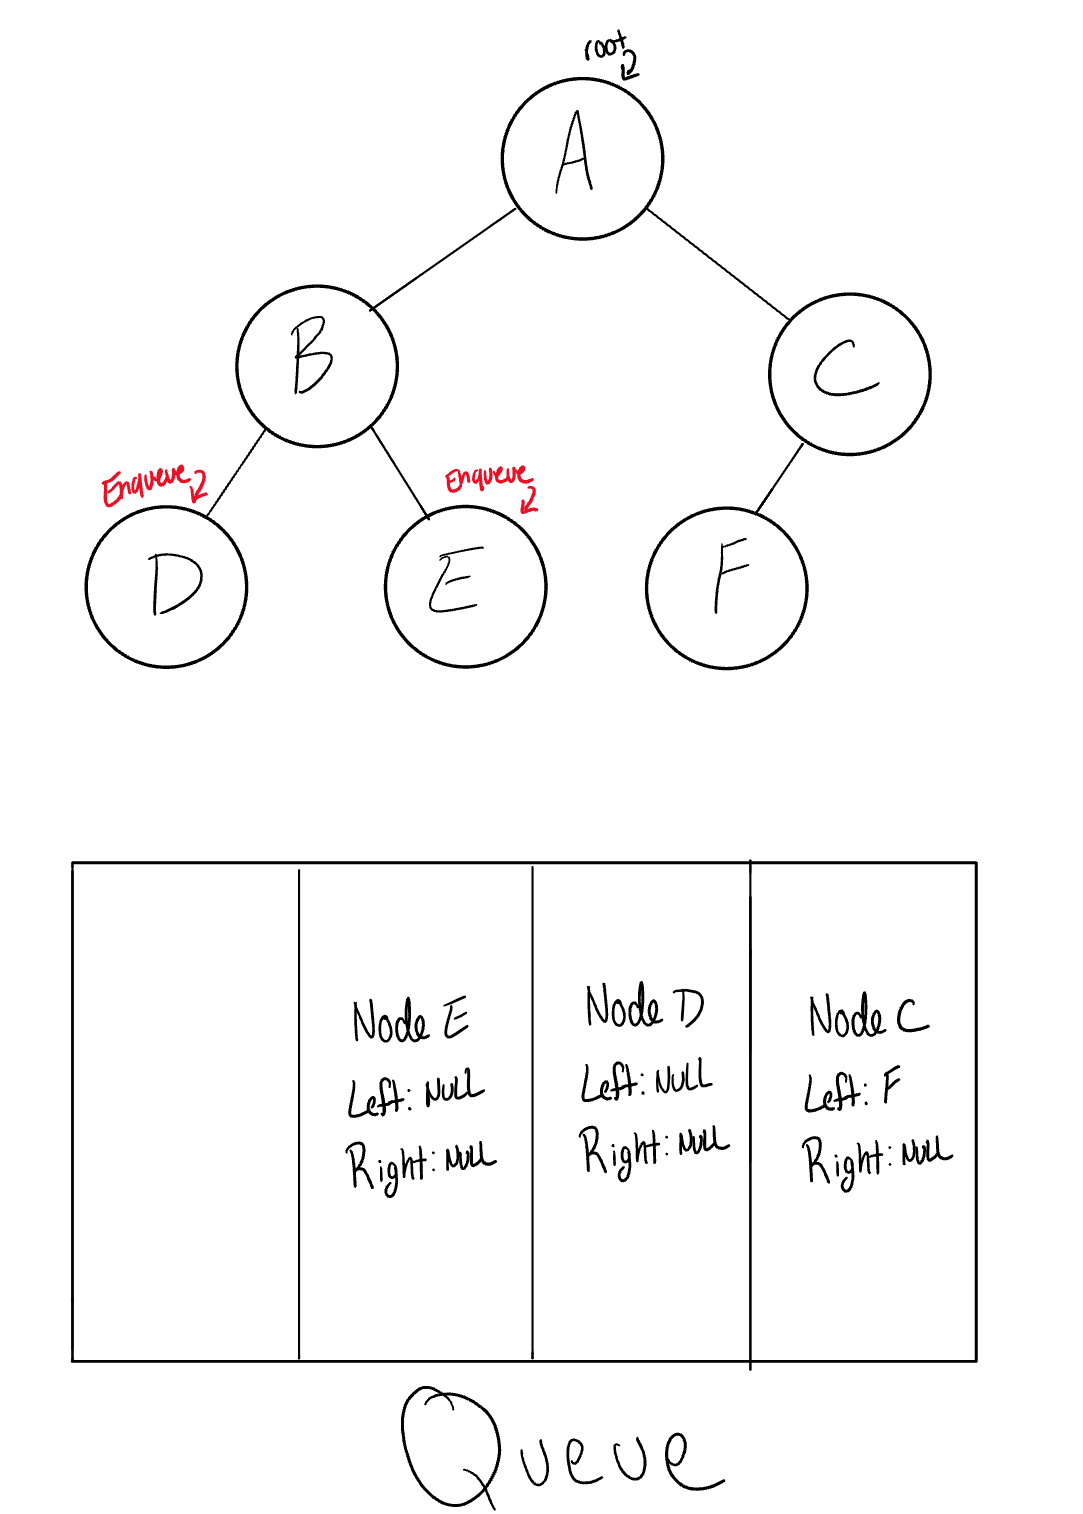 root
A
B
C
Enqueue
Enqueue
D
E
F
Node E
Left: NULL
Right: NULL
Node D
Left: NULL
Right: NULL
Node C
Left: F
Right: NULL
Queue